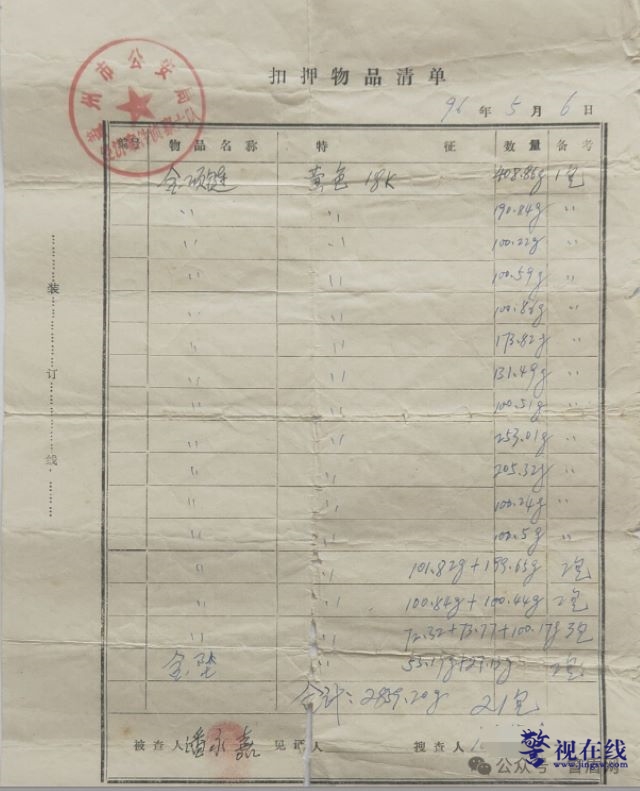 扣押物品清单
96年5月6日
州市公安局
编号 物品名称 特征 数量 备考
金项链 黄色 18K 408.86g 1包
〃 〃 190.84g 〃
〃 〃 100.22g 〃
〃 〃 100.59g 〃
〃 〃 100.86g 〃
〃 〃 173.82g 〃
〃 〃 131.49g 〃
〃 〃 100.51g 〃
〃 〃 253.01g 〃
〃 〃 205.32g 〃
〃 〃 100.24g 〃
〃 〃 100.5g 〃
〃 〃 101.82g+159.65g 2包
〃 〃 100.84g+100.44g 2包
〃 〃 72.32+73.77+100.17g 3包
金坠 〃 2包
合计:2859.20g 21包
被查人 潘永嘉 见证人 搜查人
装订线
公众号
警视在线
www.jingsw.com